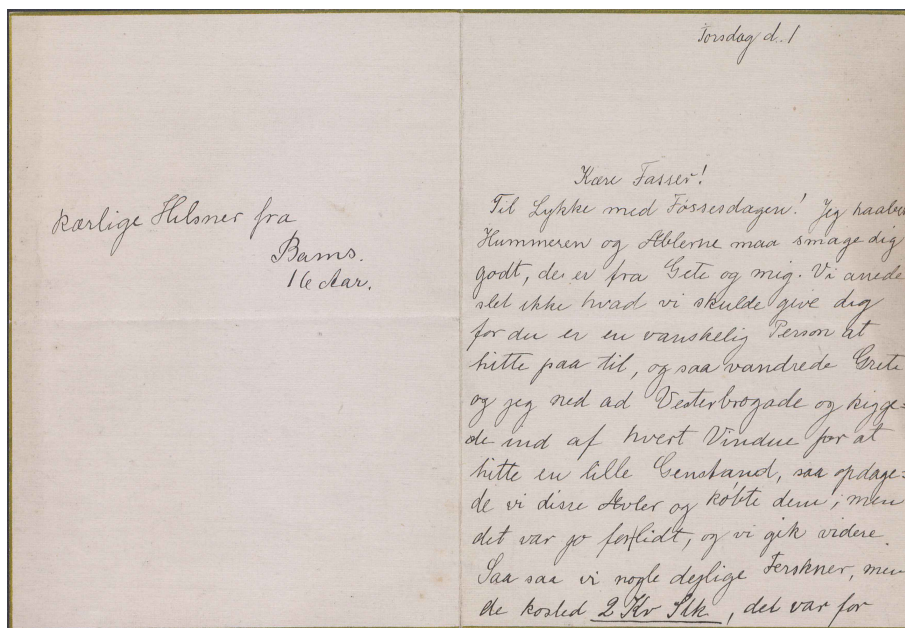 kærlige Hilsner fra
Bams.
16 Aar.
Torsdag d. 1
Kære Fasser!
Til Lykke med Føssesdagen! Jeg haaber
Hummeren og Æblerne maa smage dig
godt, de er fra Grete og mig. Vi anede
slet ikke hvad vi skulde give dig
for du er en vanskelig Person at
hitte paa til, og saa vandrede Grete
og jeg ned ad Vesterbrogade og kigge=
de ind af hvert Vindue for at
hitte en lille Genstand, saa opdage=
de vi disse Æbler og købte dem; men
det var jo for lidt, og vi gik videre.
Saa saa vi nogle dejlige Ferskner, men
de kosted 2 Kr Stk, det var for